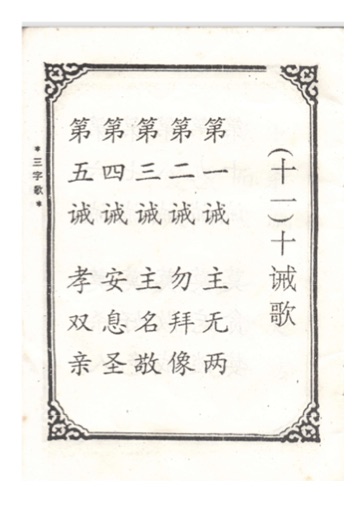 (十一)十诫歌
第一诫 主无两
第二诫 勿拜像
第三诫 主名敬
第四诫 安息圣
第五诫 孝双亲
*三字歌*